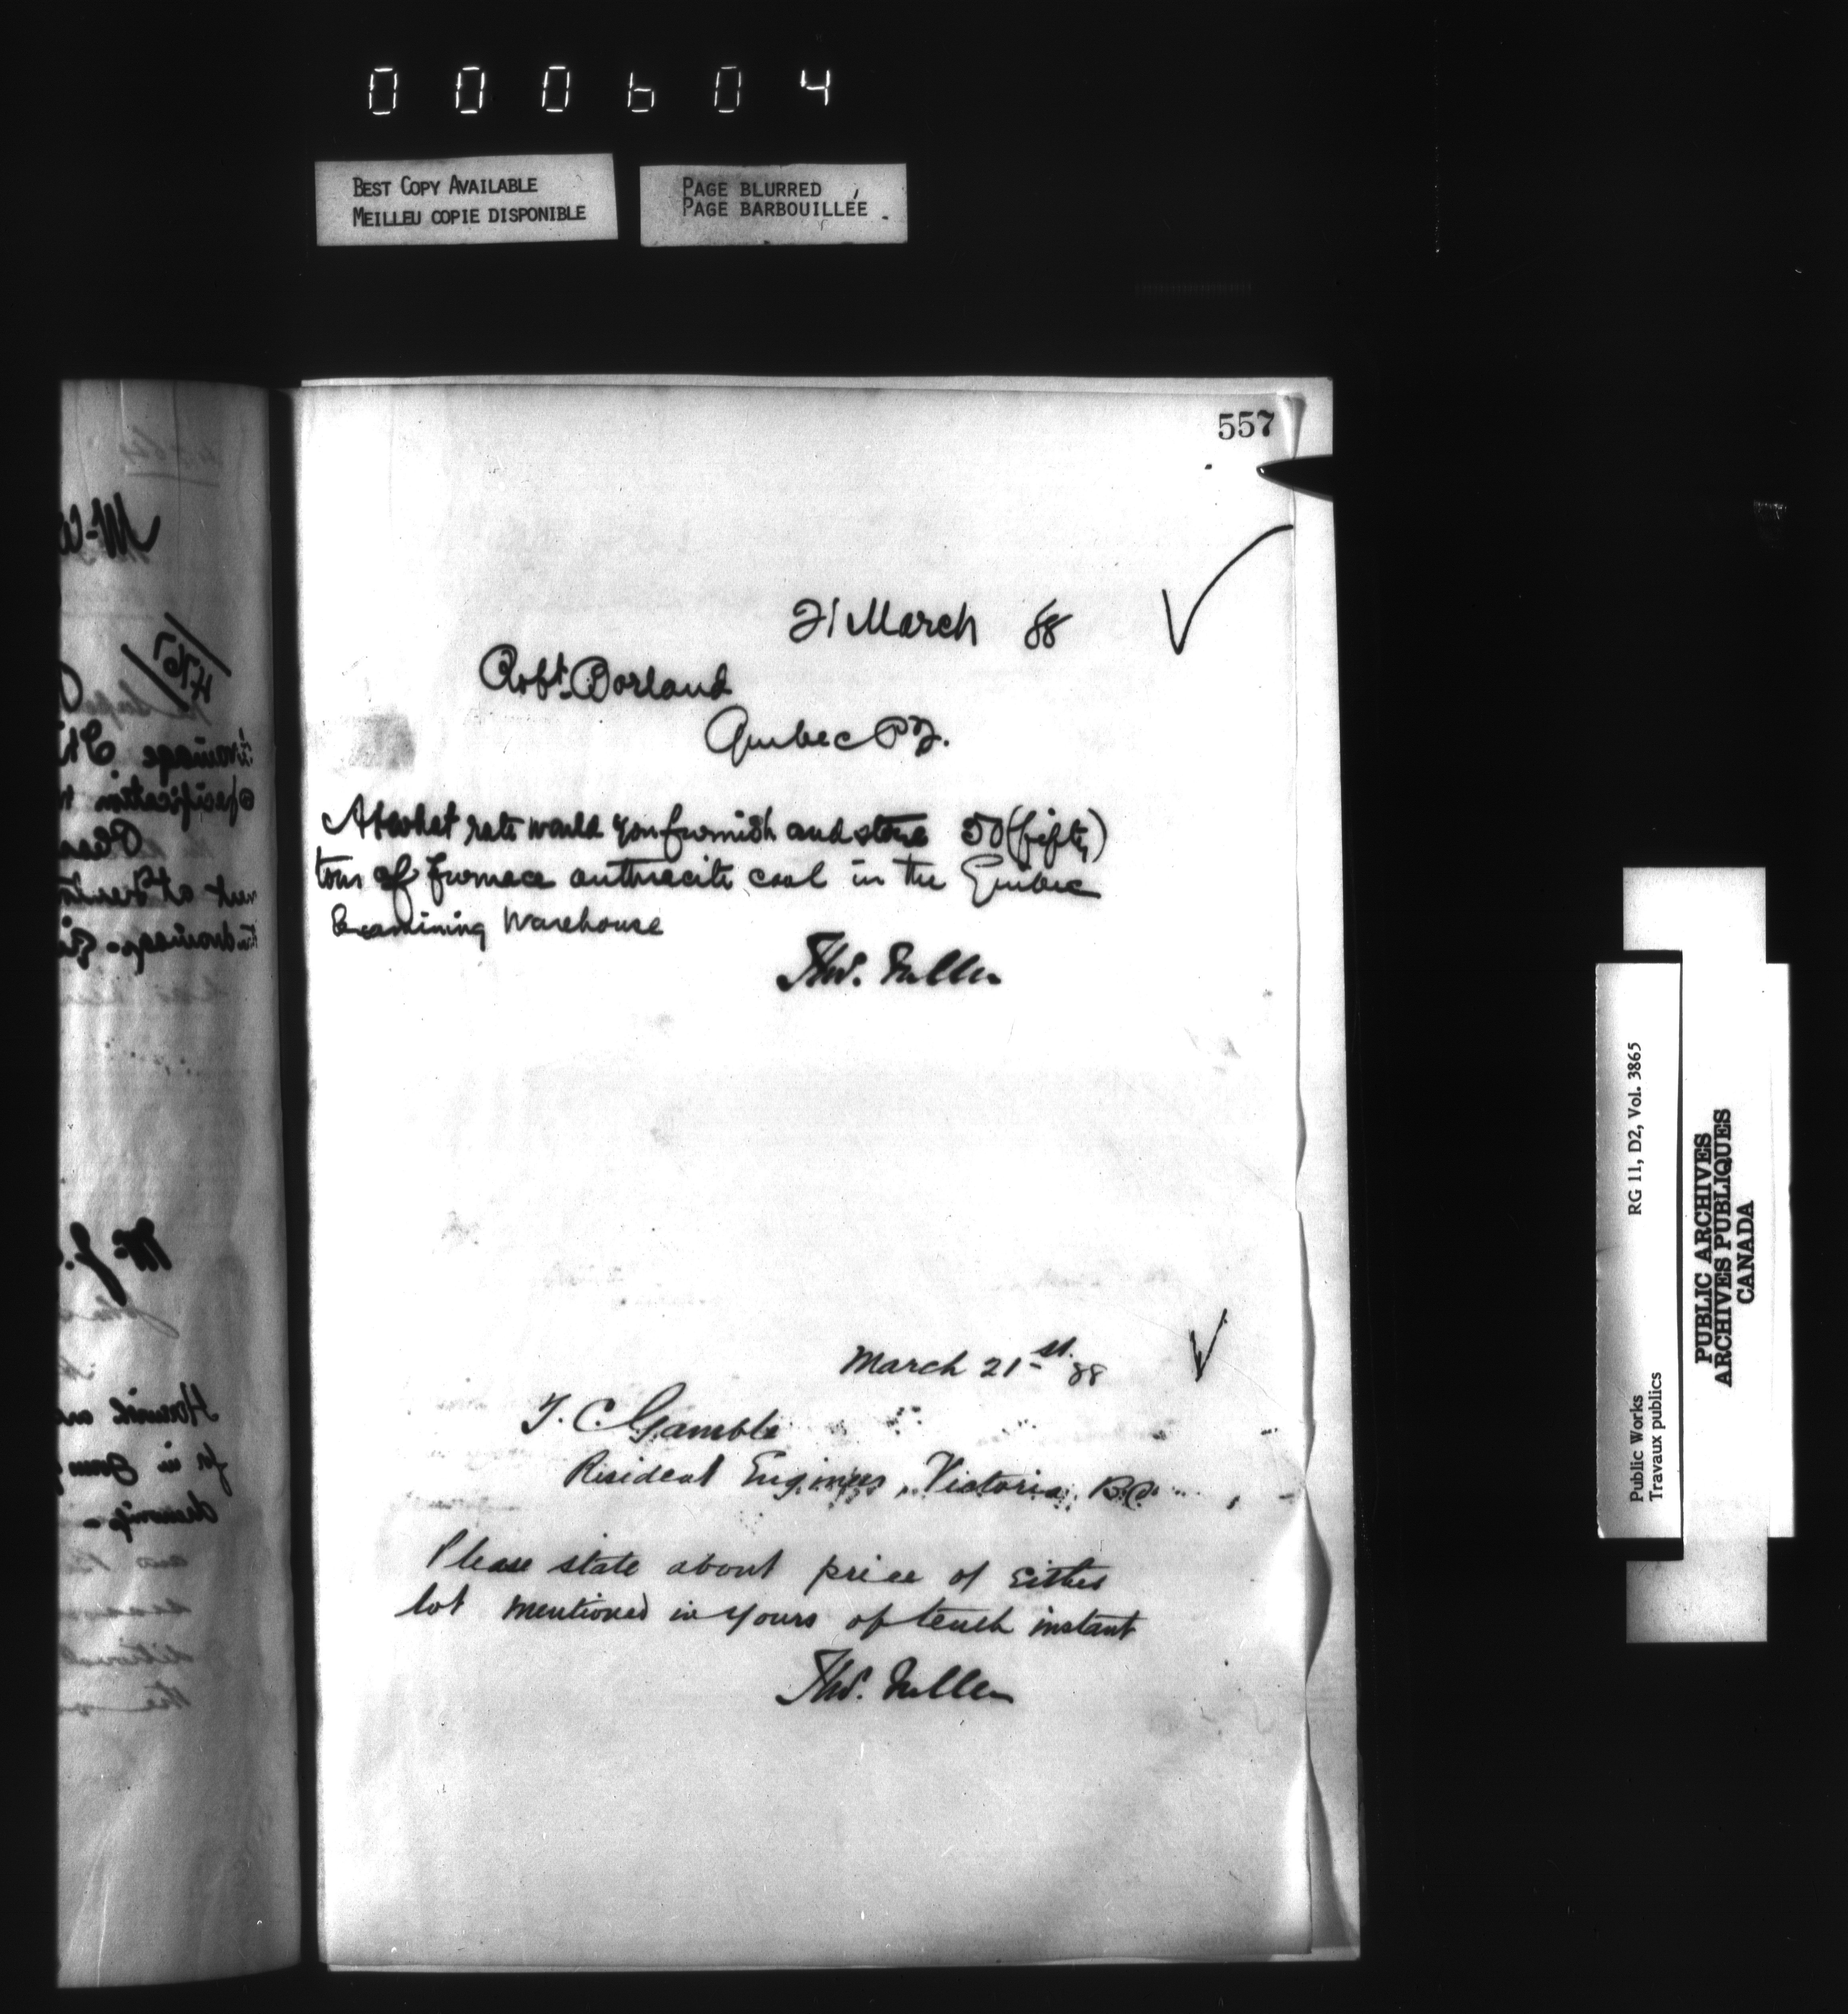 000604
BEST COPY AVAILABLE
MEILLEU COPIE DISPONIBLE
PAGE BLURRED
PAGE BARBOUILLÉE
557
21 March 88
Robt. Borland
Quebec P2.
At what rate would you furnish and store 50 (fifty)
tons of furnace anthracite coal in the Quebec
Examining Warehouse
Thos. Fuller
March 21st. 88
F. C. Gamble
Resident Engineer, Victoria B.C.
Please state about price of either
lot mentioned in yours of tenth instant
Thos. Fuller
Public Works RG 11, D2, Vol. 3865
Travaux publics
PUBLIC ARCHIVES
ARCHIVES PUBLIQUES
CANADA